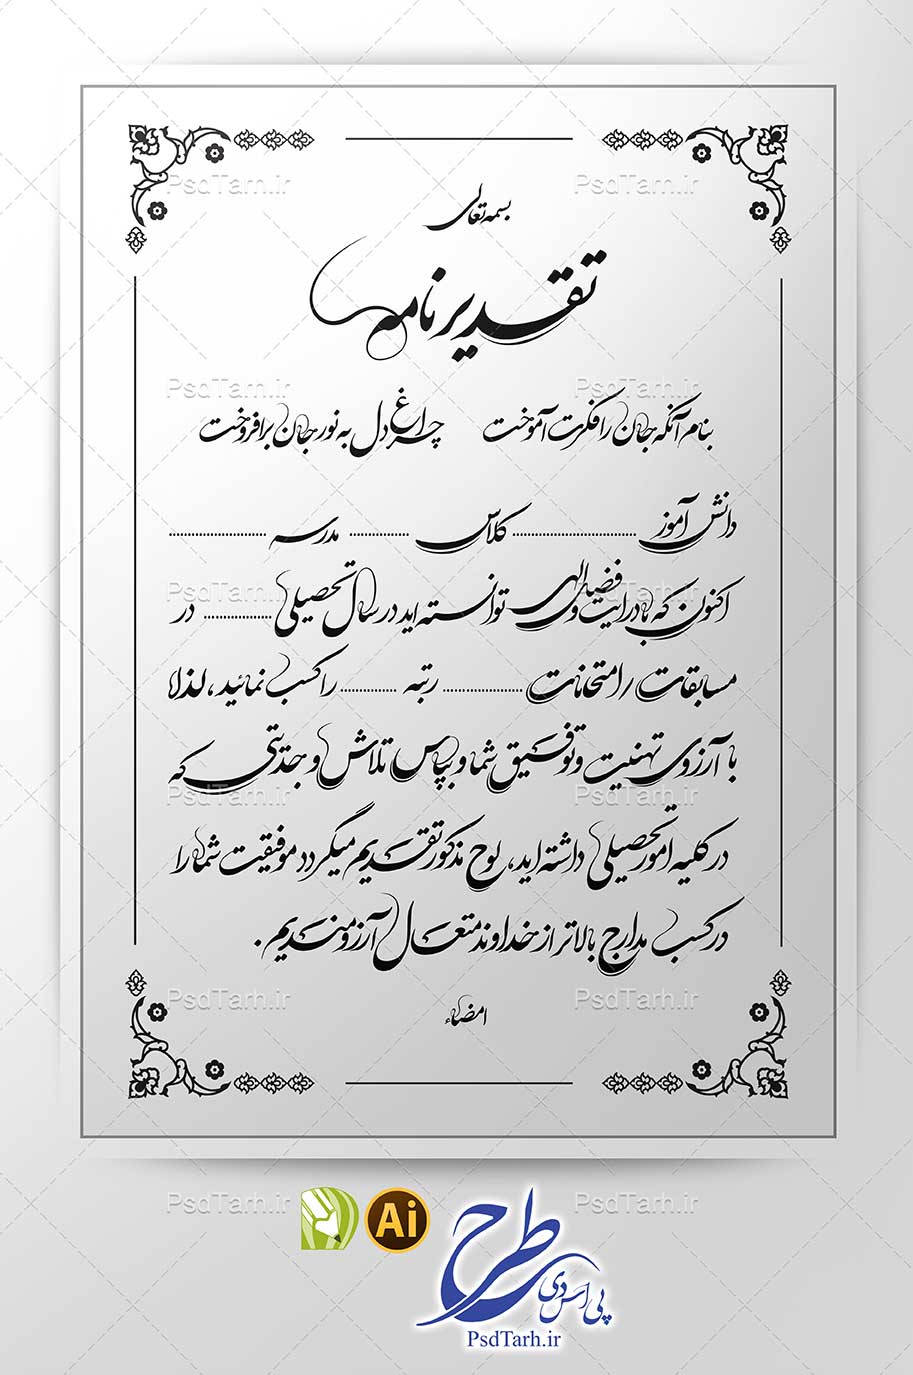 بسمه تعالی
تقدیرنامه
بنام آنکه جان را فکرت آموخت چراغ دل به نور جان برافروخت
دانش آموز .................... کلاس .......... مدرسه ................
اکنون که با درایت و فضل الهی توانسته اید در سال تحصیلی ........... در
مسابقات / امتحانات ............. رتبه ......... را کسب نمائید، لذا
با آرزوی تهنیت و توفیق شما و بپاس تلاش و جدیتی که
در کلیه امور تحصیلی داشته اید، لوح مذکور تقدیم میگردد موفقیت شما را
در کسب مدارج بالاتر از خداوند متعال آرزومندیم.
امضاء
Ai
طرح
پی اس دی
PsdTarh.ir